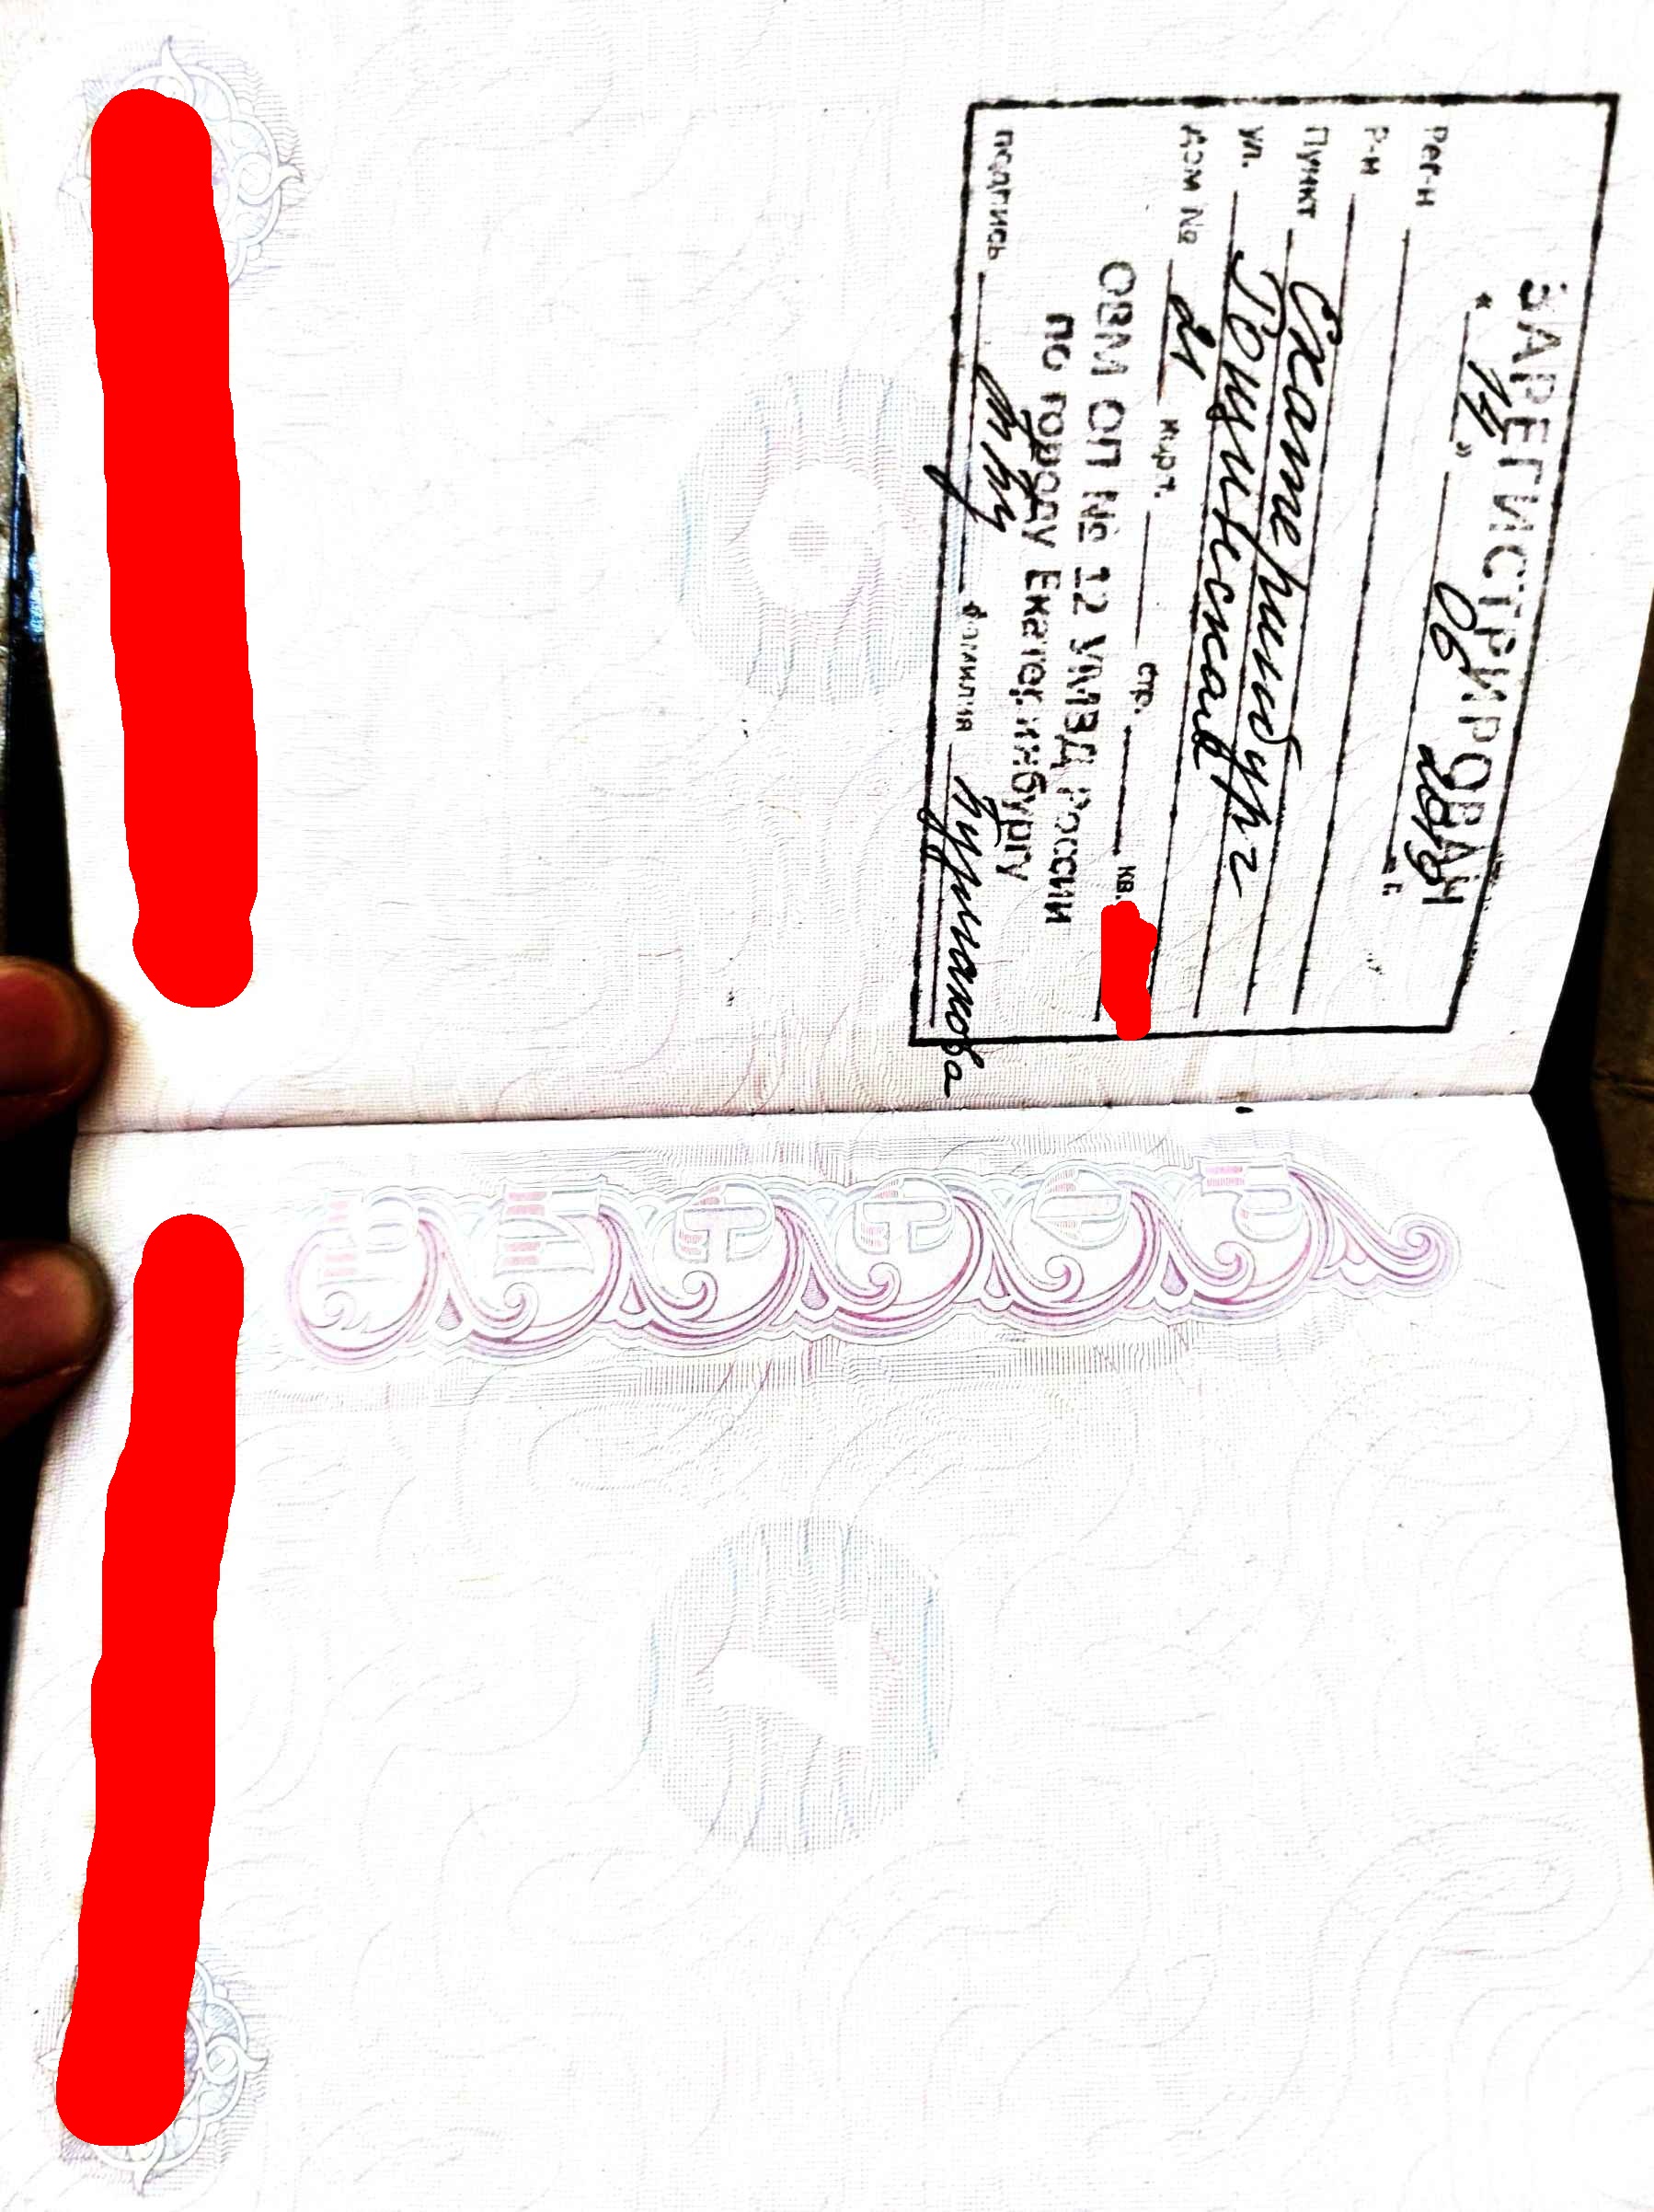 ЗАРЕГИСТРИРОВАН
« 14 » 06 2018 г.
Рег-н
Р-н
Пункт Екатеринбург
ул. Донбасская
Дом № 21 корп. стр. кв.
ОВМ ОП № 12 УМВД России
по городу Екатеринбургу
подпись фамилия Бурмакова